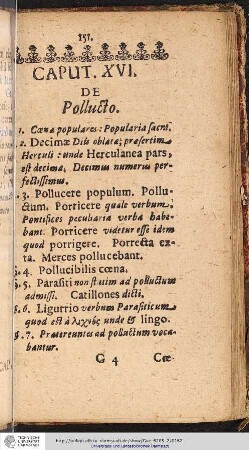 151.
CAPUT. XVI.
DE
Pollucto.
1. Cœna populares: Popularia sacra.
2. Decimæ Diis oblatæ; præsertim
Herculi: unde Herculanea pars,
est decima, Decimus numerus per-
fectissimus.
3. Pollucere populum. Pollu-
ctum. Porricere quale verbum.
Pontifices peculiaria verba habe-
bant. Porricere videtur esse idem
quod porrigere. Porrecta ex-
ta. Merces pollucebant.
4. Pollucibilis cœna.
5. Parasiti non statim ad polluctum
admissi. Catillones dicti.
6. Ligurrio verbum Parasiticum
quod est à λιχνὸς unde & lingo.
7. Prætereuntes ad polluctum voca-
bantur.
G 4
Cœ-